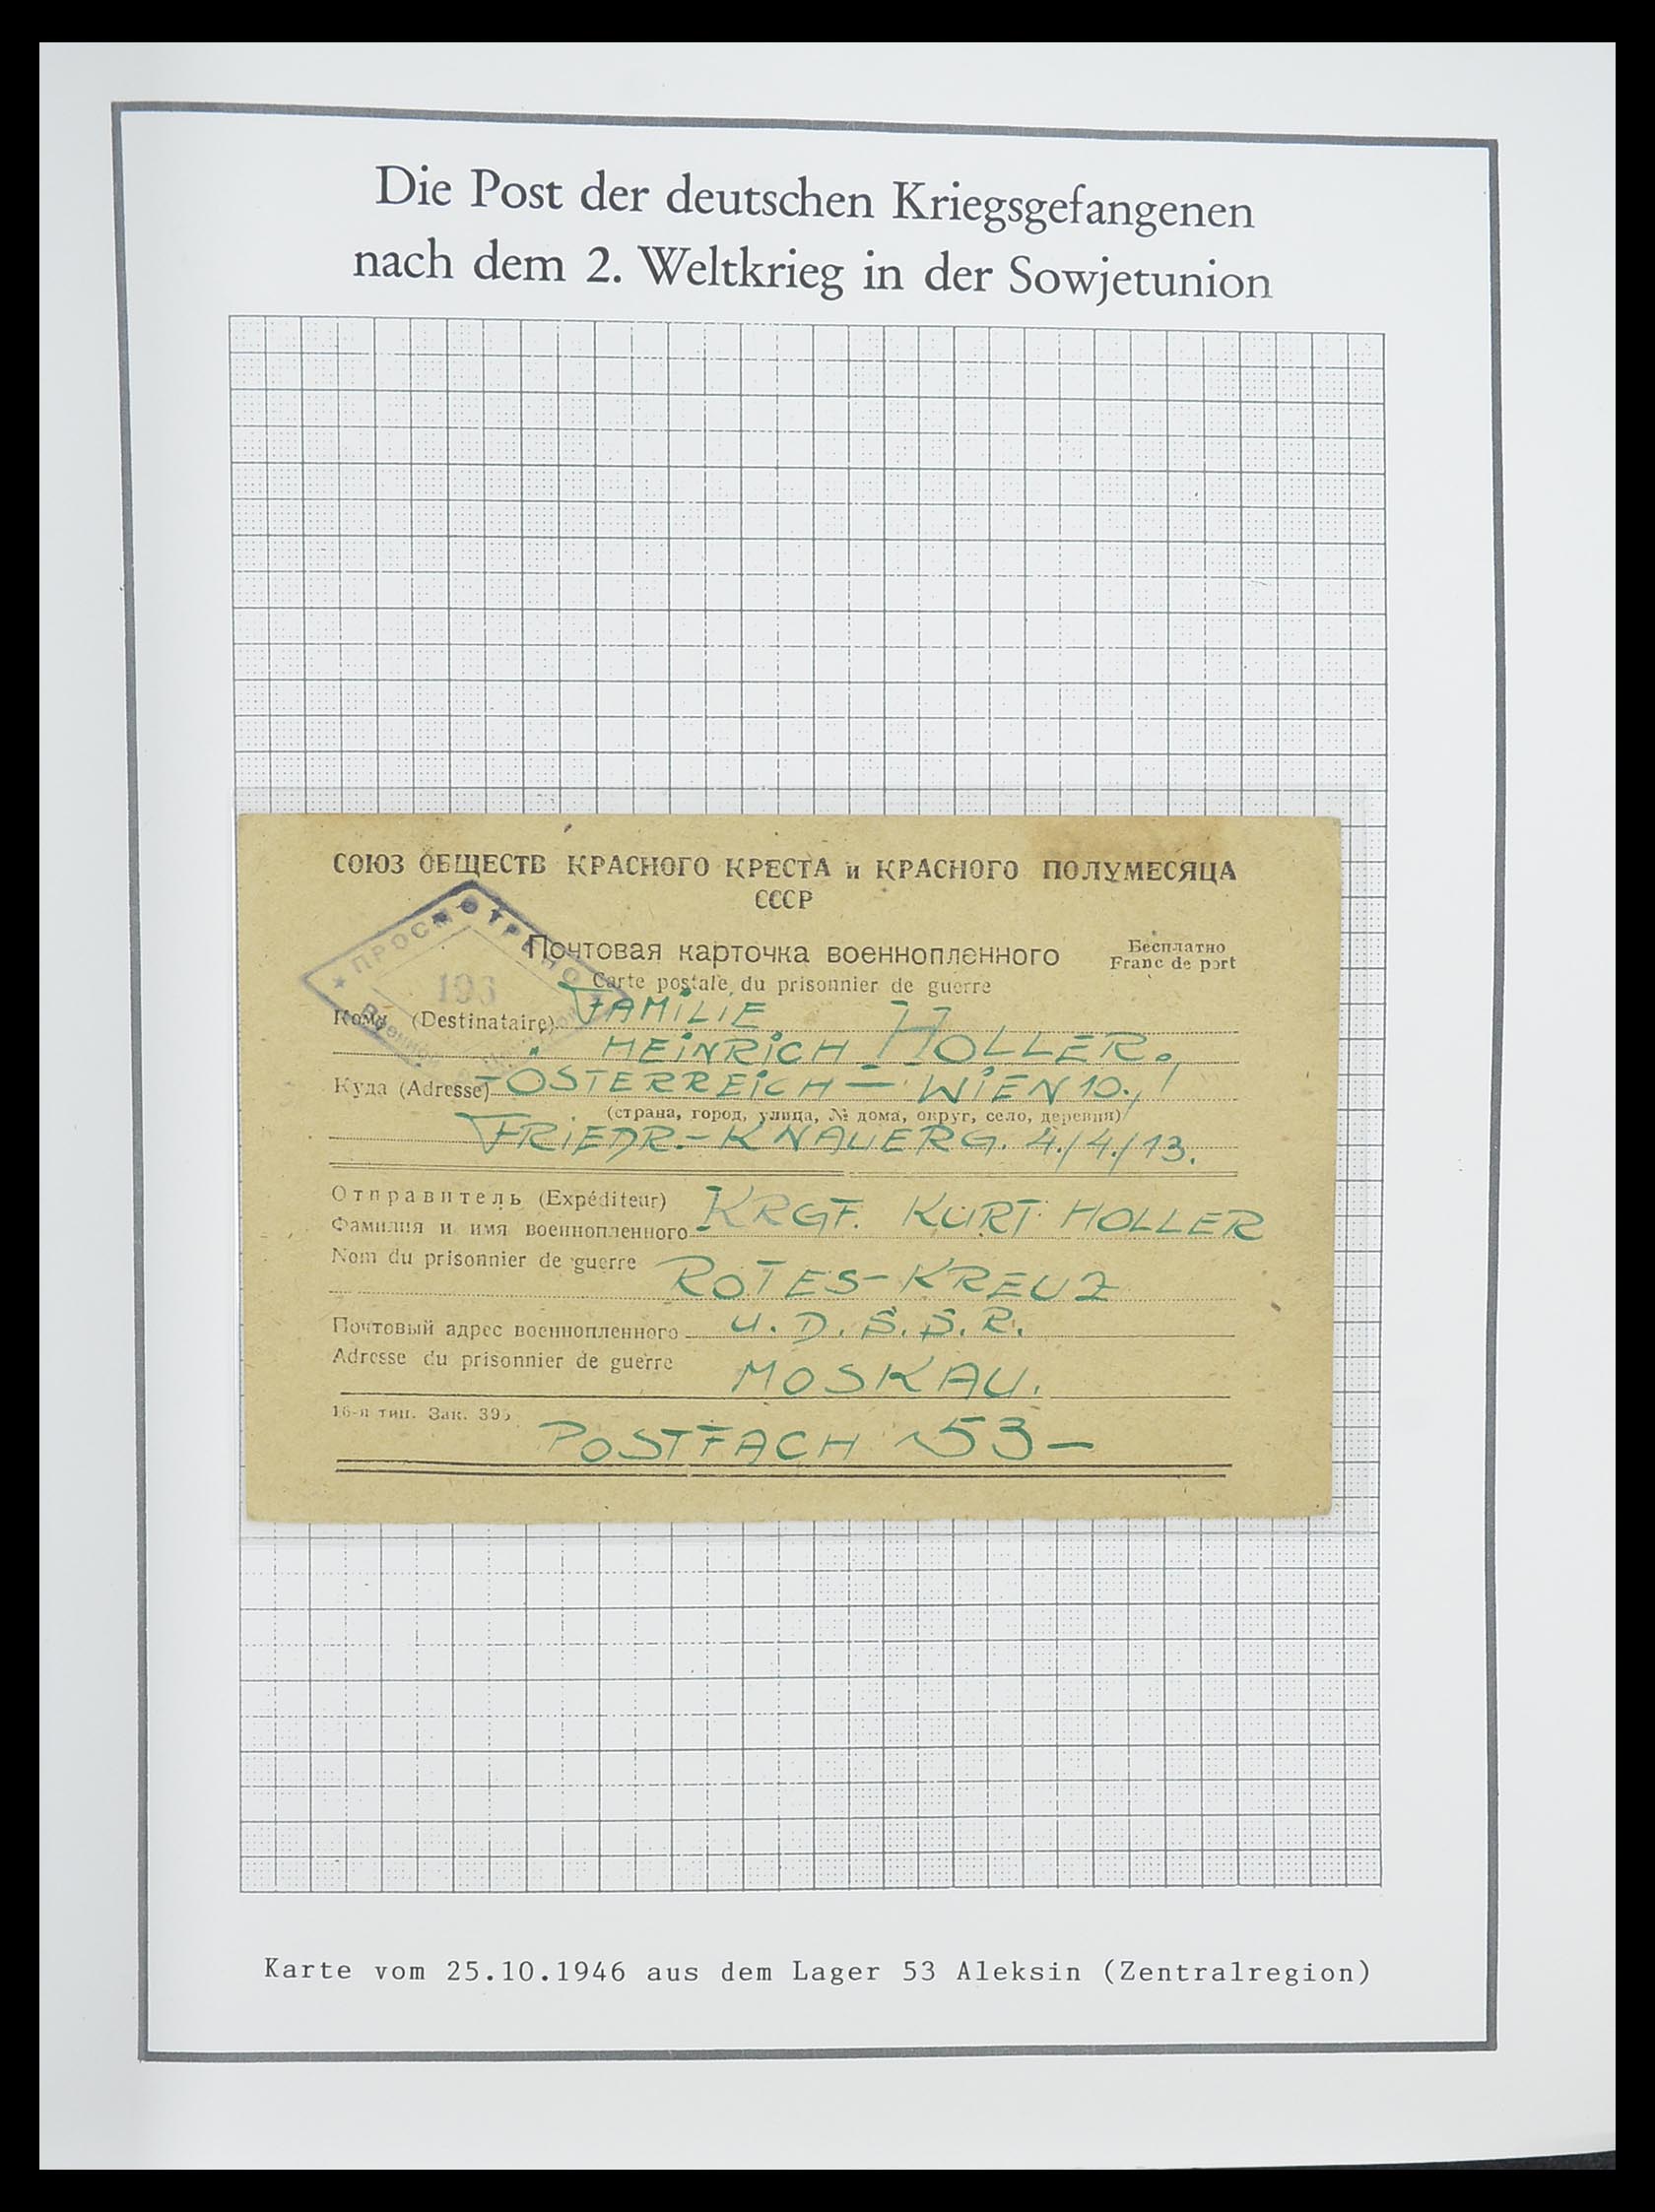 Die Post der deutschen Kriegsgefangenen
nach dem 2. Weltkrieg in der Sowjetunion
СОЮЗ ОБЩЕСТВ КРАСНОГО КРЕСТА и КРАСНОГО ПОЛУМЕСЯЦА
СССР
ПРОСМОТРЕНО
193
Почтовая карточка военнопленного
Бесплатно
Franc de port
Carte postale du prisonnier de guerre
Кому (Destinataire) FAMILIE
" HEINRICH HOLLER.
Куда (Adresse) - ÖSTERREICH - WIEN 10.,
(страна, город, улица, № дома, округ, село, деревня)
FRIEDR.-KNAUERG. 4./4./13.
Отправитель (Expéditeur)
Фамилия и имя военнопленного KRGF. KURT HOLLER
Nom du prisonnier de guerre
ROTES-KREUZ
Почтовый адрес военнопленного U.D.S.S.R.
Adresse du prisonnier de guerre
MOSKAU.
16-я тип. Зак. 395
POSTFACH 53-
Karte vom 25.10.1946 aus dem Lager 53 Aleksin (Zentralregion)